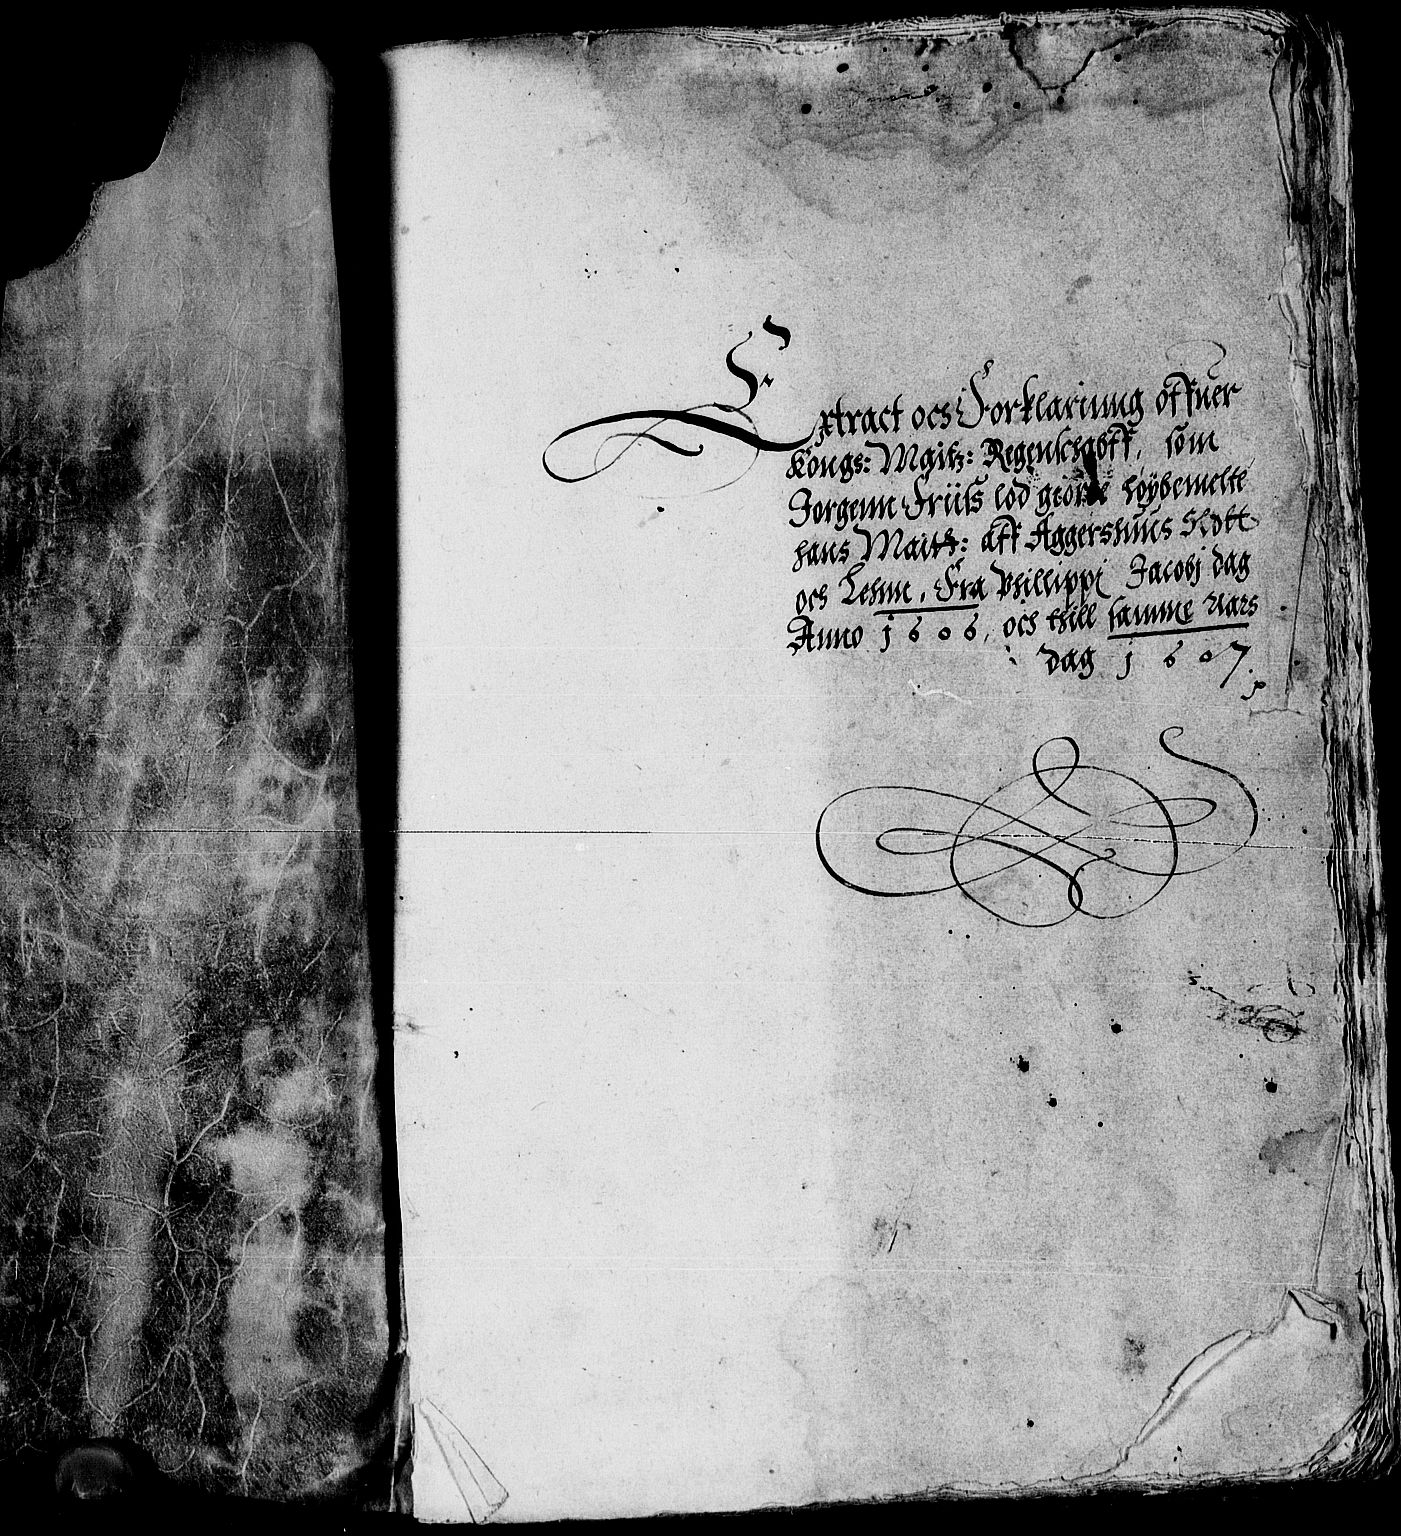 Extract och Forklariung offuer
Kongs: Maitz: Regenschaoff, som
Jorgenn Friiss lod geøre høybemelte
hans Maitt: aff Aggershuus Slott
och Lehnn, Fra Phillippi Jacobj dag
Anno 1606, och thill samme Aars
dag 1607.